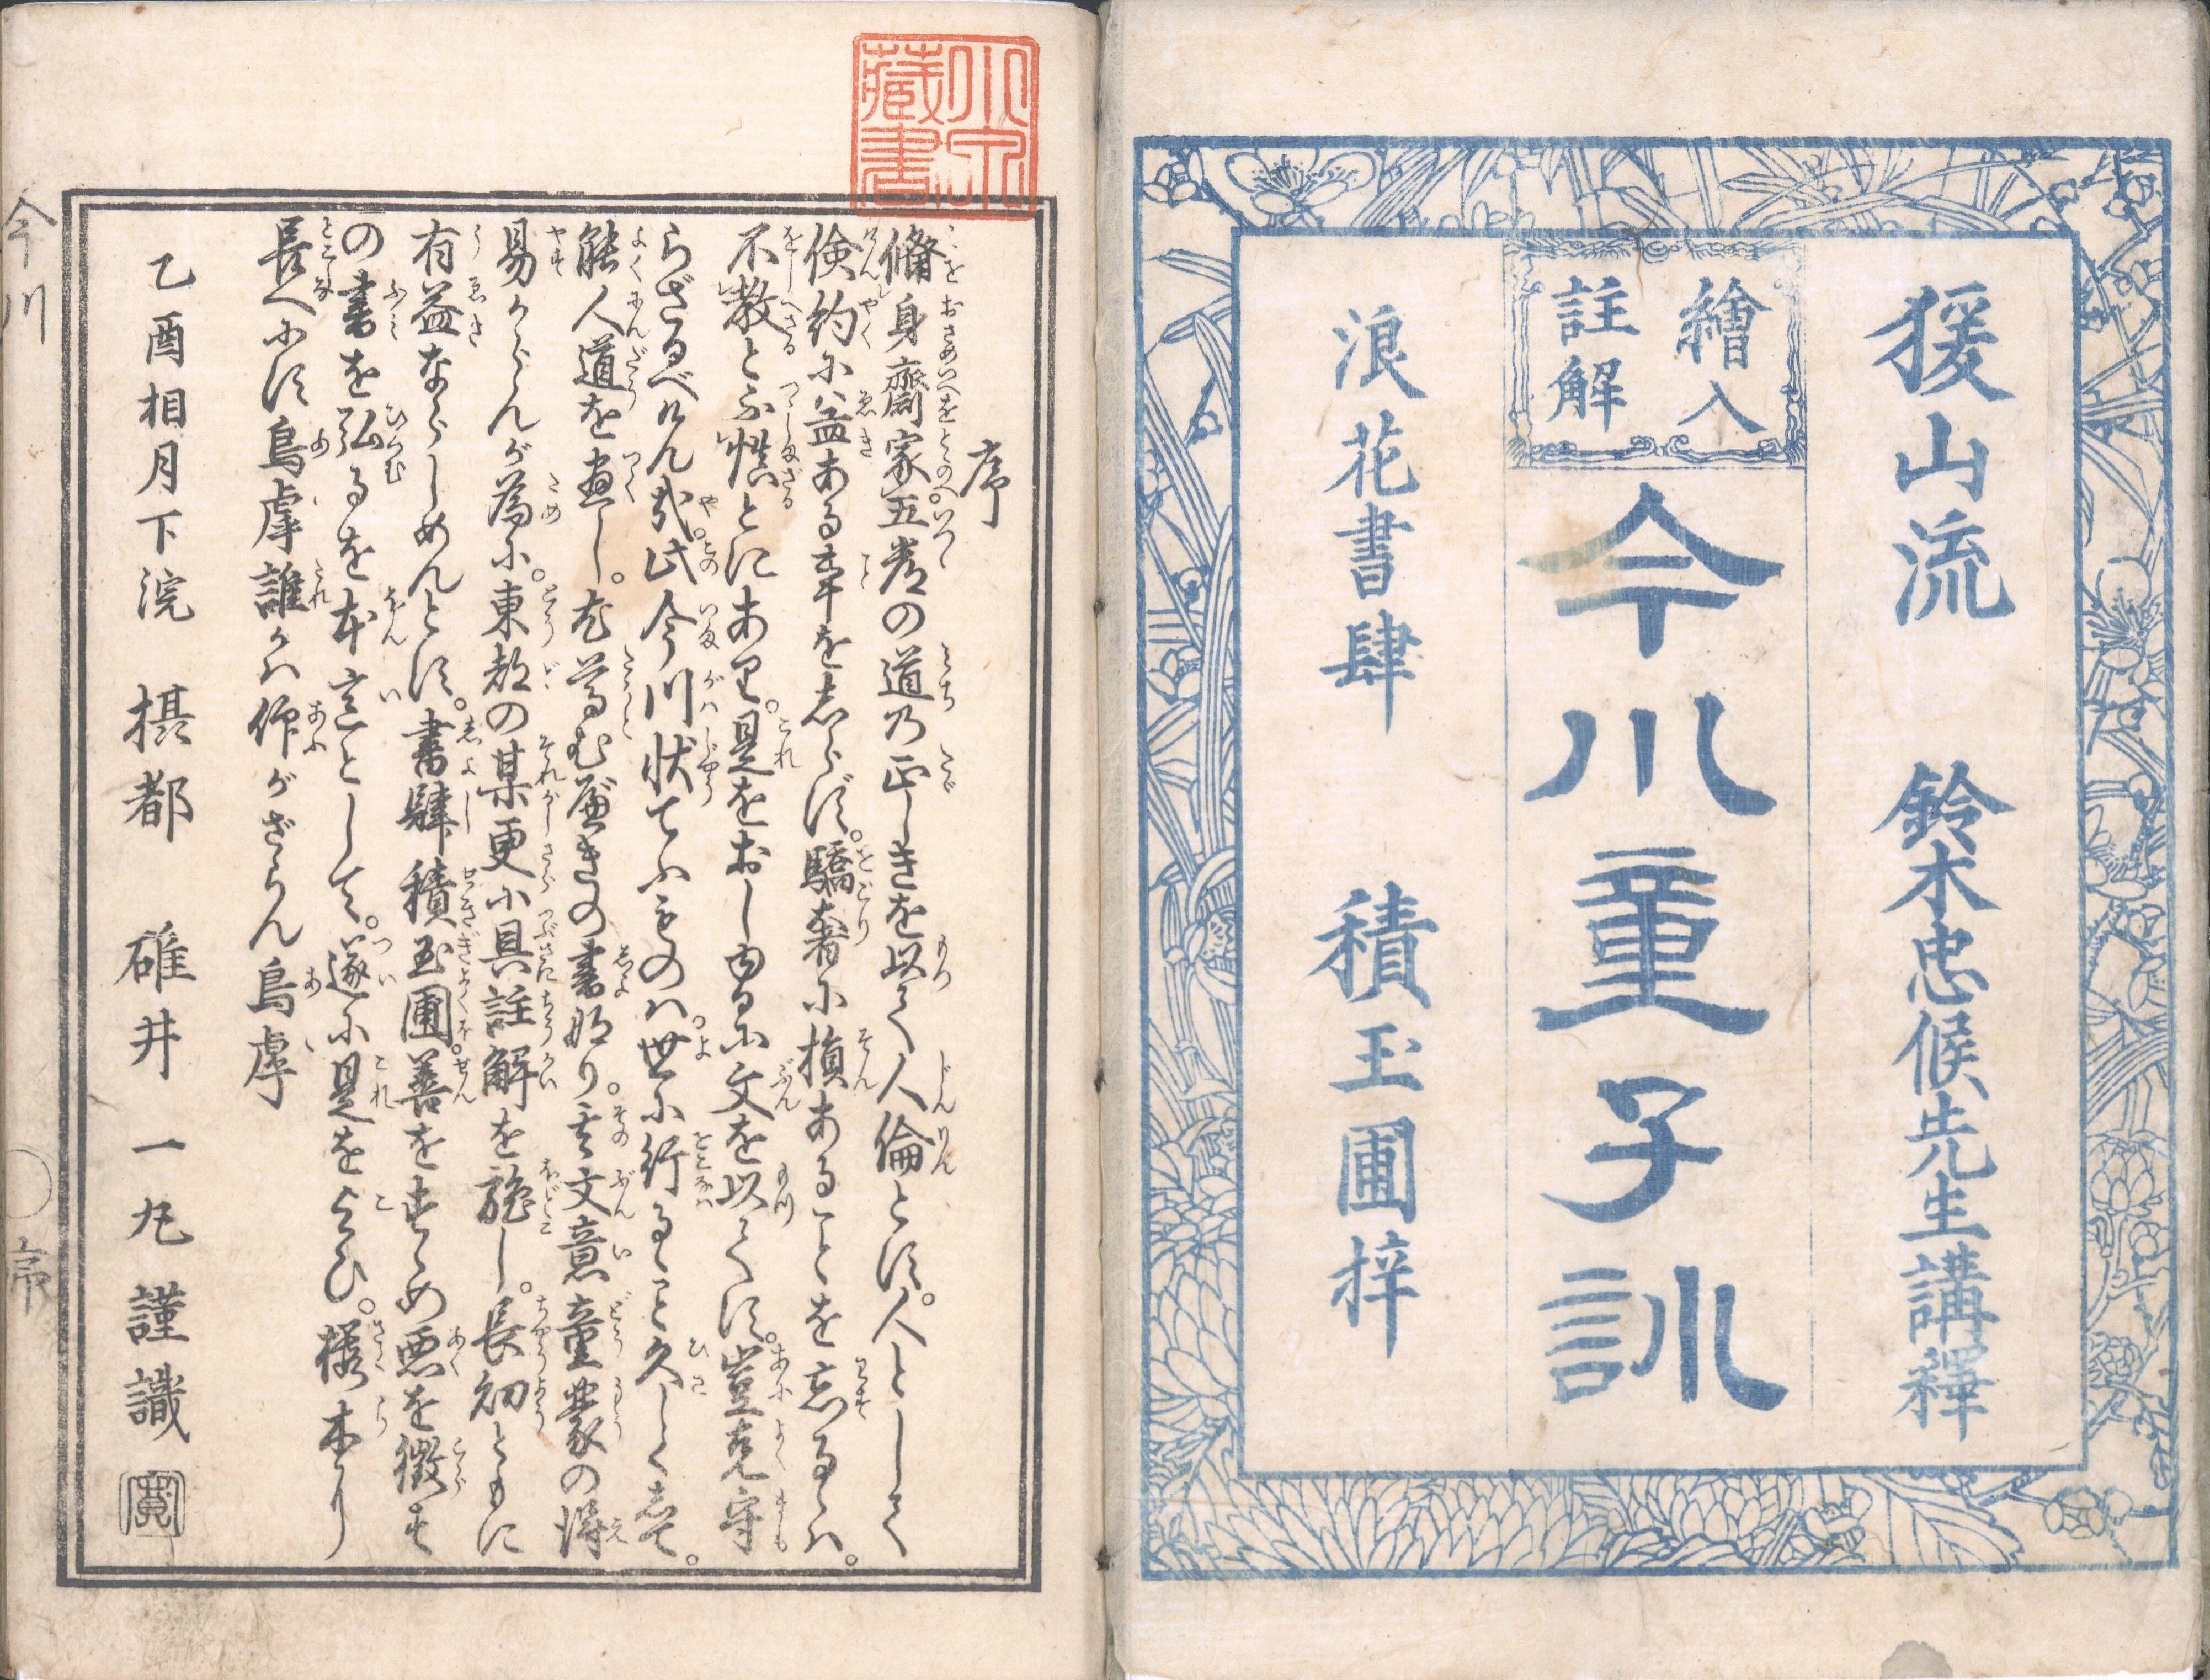 猨山流　鈴木忠候先生講釋
繪入
註解
今川童子訓
浪花書肆　積玉圃梓
小泉
藏書
序
脩身齊家五常の道乃正しきを以て人倫とす。人として
倹約に益ある事を志らず。驕奢に損あることを忘るゝハ。
不教と不慎とにあり。是をおしゆるに文を以てす。豈克守
らざるべけん哉。此今川状てふものハ。世に行るゝこと久しく志て。
能人道を盡し。尤尊む庭きの書なり。其文意童蒙の得
易からんが為に。東都の某更に具註解を施し。長幼ともに
有益ならしめんとす。書肆積玉圃善をすゝめ悪を徴す
の書を弘るを本意として。遂に是を乞ひ。桜木り
長へにす烏虖誰かハ仰がざらん烏虖
乙酉相月下浣　摂都　碓井一九謹識
今川
序